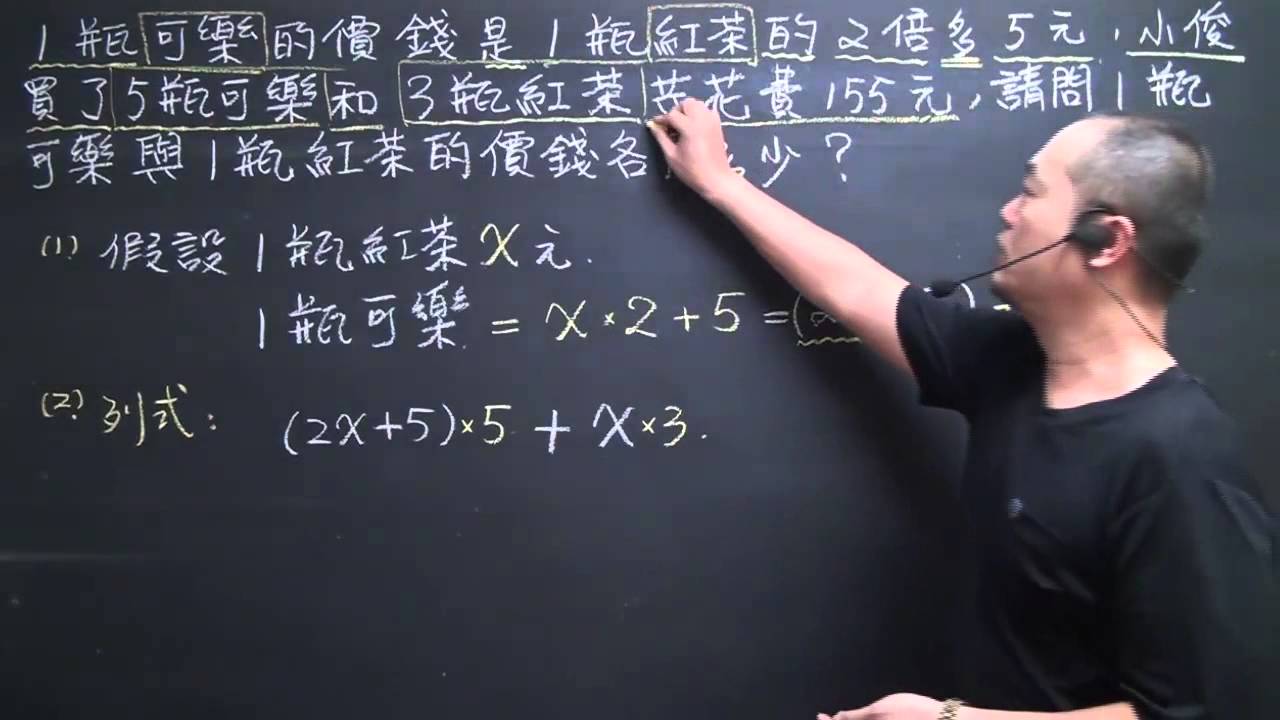 1瓶可樂的價錢是1瓶紅茶的2倍多5元,小俊
買了5瓶可樂和3瓶紅茶共花費155元,請問1瓶
可樂與1瓶紅茶的價錢各少?
(1) 假設1瓶紅茶X元.
1瓶可樂=X×2+5=(2
(2). 列式: (2X+5)×5+X×3.